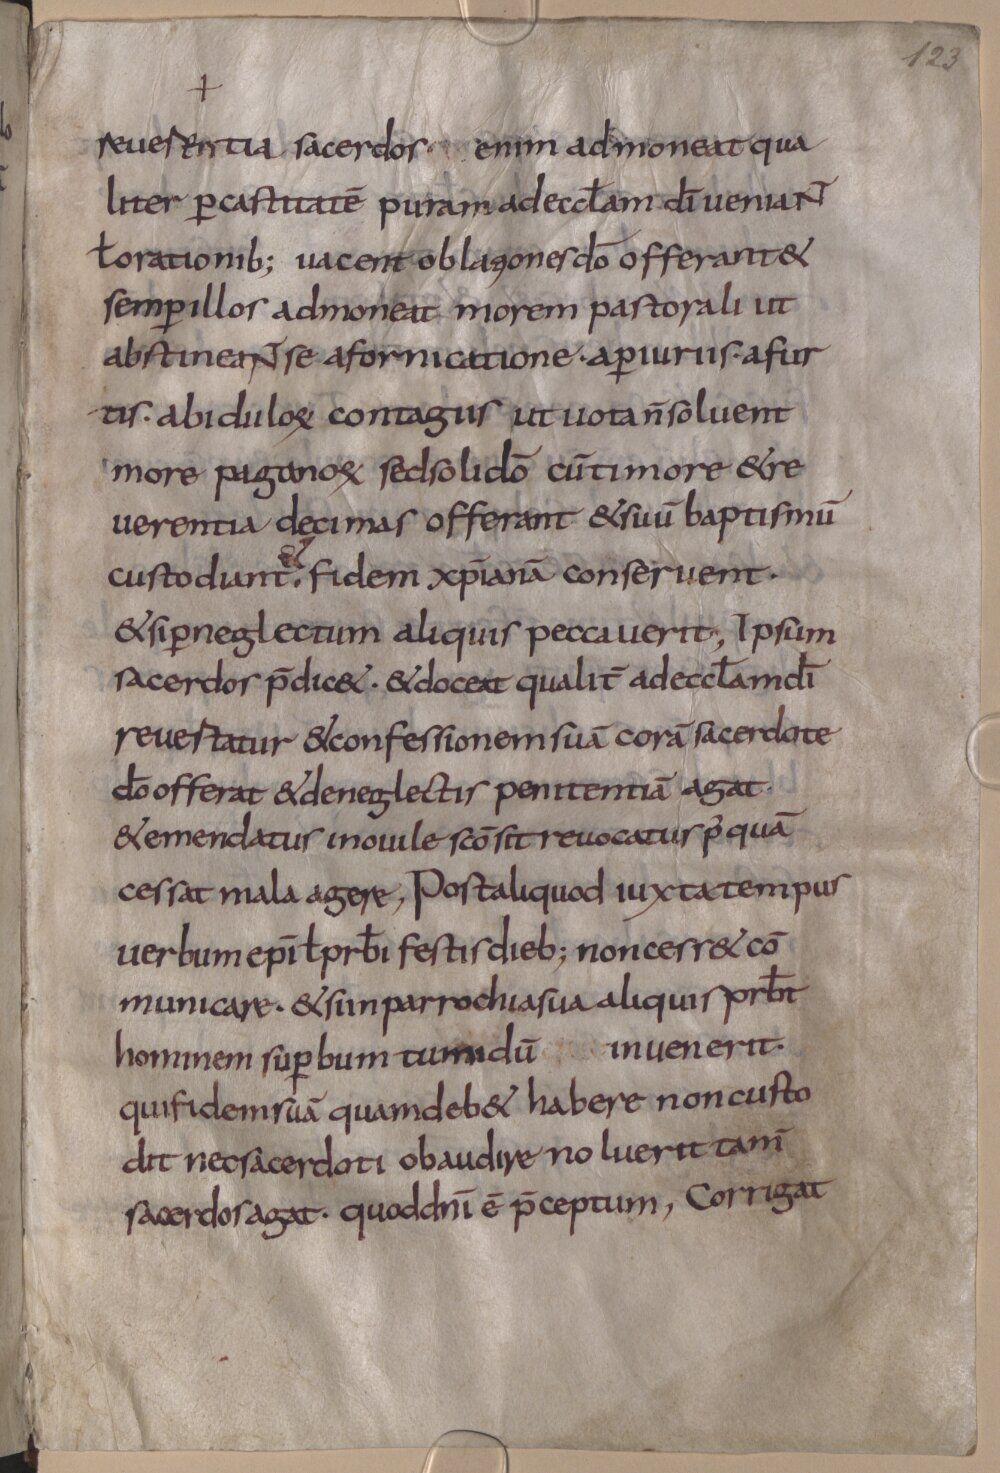 123
+
reuerentia sacerdos· enim admoneat qua
liter ꝑcastitatē puram adeccl̄am dī ueniaNT̄
ł orationib; uacent oblaꝯones dō offerant &
semꝑ illos admoneat morem pastorali ut
abstineaNT se afornicatione · aꝑiuriis · afur
tis · abiduloꝝ contagiis ut uota n̄ soluent
more paganoꝝ sed soli dō cū timore & re
uerentia decimas offerant & suū baptismū
custodiant · & fidem xp̄ianā conseruent ·
& siꝑneglectum aliquis peccauerit, Ipsum
sacerdos p̄dic& · & doceat qualit̄ adeccl̄am dī
reuestatur & confessionem suā corā sacerdote
dō offerat & deneglectis penitentiā agat ·
& emendatus inouile scō sit reuocatus p̉quā
cessat mala agere, Post aliquod iuxta tempus
uerbum epī ł prb̄i festis dieb; non cess& cō
municare · & si in parrochia sua aliquis prb̄it
hominem suꝑbum tumidū inuenerit ·
qui fidem suā quam deb& habere non custo
dit nec sacerdoti obaudire noluerit tam̄
sacerdos agat · quod dnī ē p̄ceptum, Corrigat